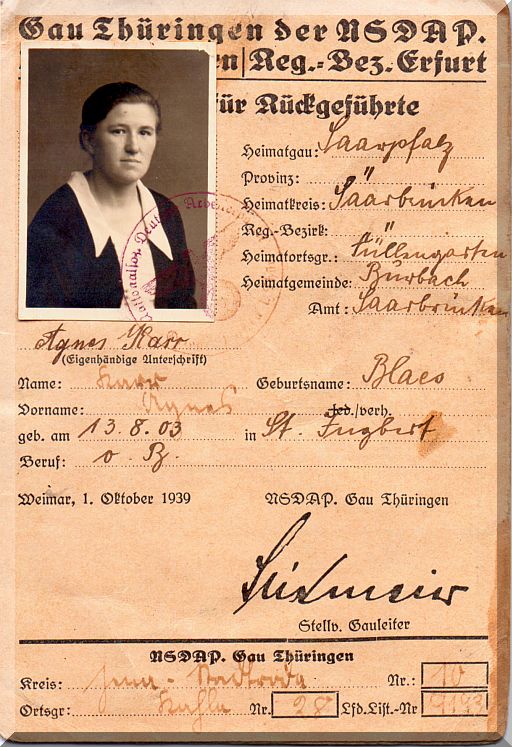 Gau Thüringen der NSDAP.
en | Reg.-Bez. Erfurt
für Rückgeführte
Heimatgau: Saarpfalz
Provinz: "
Heimatkreis: Saarbrücken
Reg.-Bezirk: "
Heimatortsgr.: Füllengarten
Heimatgemeinde: Burbach
Amt: Saarbrücken
Agnes Karr
(Eigenhändige Unterschrift)
Name: Karr Geburtsname: Blaes
Vorname: Agnes led./verh.
geb. am 13.8.03 in St. Ingbert
Beruf: o. B.
Weimar, 1. Oktober 1939 NSDAP. Gau Thüringen
Stellv. Gauleiter
NSDAP. Gau Thüringen
Kreis: Jena-Stadtroda Nr.: 10
Ortsgr: Kahla Nr. 28 Lfd.List.-Nr